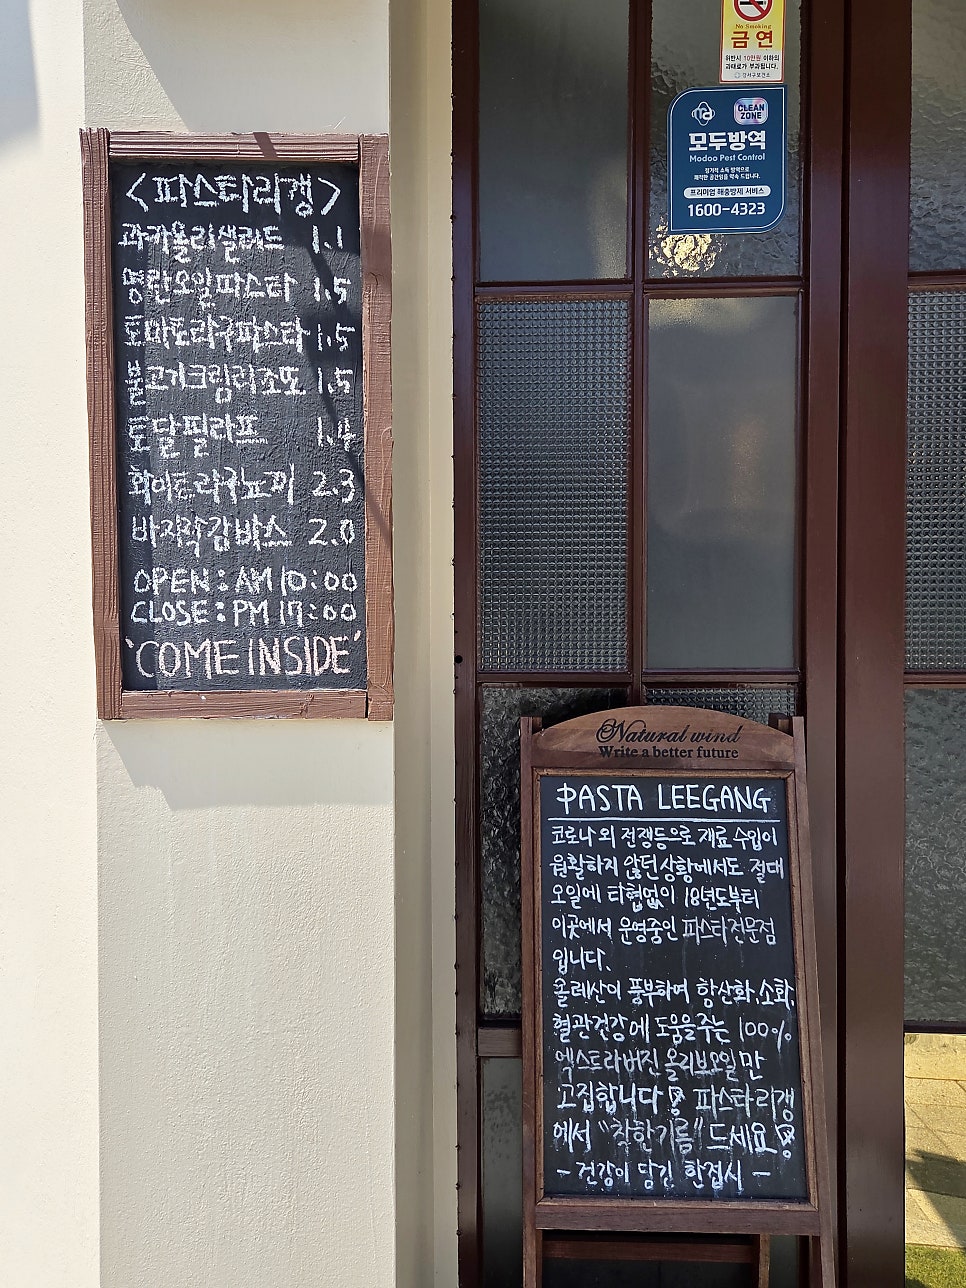 <파스타리갱>
과카올리샐러드 1.1
명란오일파스타 1.5
토마토라구파스타 1.5
불고기크림리조또 1.5
토달필라프 1.4
화이트라구뇨끼 2.3
바지락감바스 2.0
OPEN:AM 10:00
CLOSE:PM 17:00
'COME INSIDE'
No Smoking
금연
위반시 10만원 이하의
과태료가 부과됩니다.
강서구보건소
CLEAN
ZONE
모두방역
Modoo Pest Control
정기적 소독 방역으로
쾌적한 공간임을 약속 드립니다.
프리미엄 해충방제 서비스
1600-4323
Natural wind
Write a better future
PASTA LEEGANG
코로나 외 전쟁등으로 재료 수입이
원활하지 않던 상황에서도 절대
오일에 타협없이 18년도부터
이곳에서 운영중인 파스타전문점
입니다.
올레산이 풍부하여 항산화,소화,
혈관건강에 도움을주는 100%
엑스트라버진 올리브오일만
고집합니다 파스타리갱
에서 "착한기름" 드세요
- 건강이 담긴 한접시 -